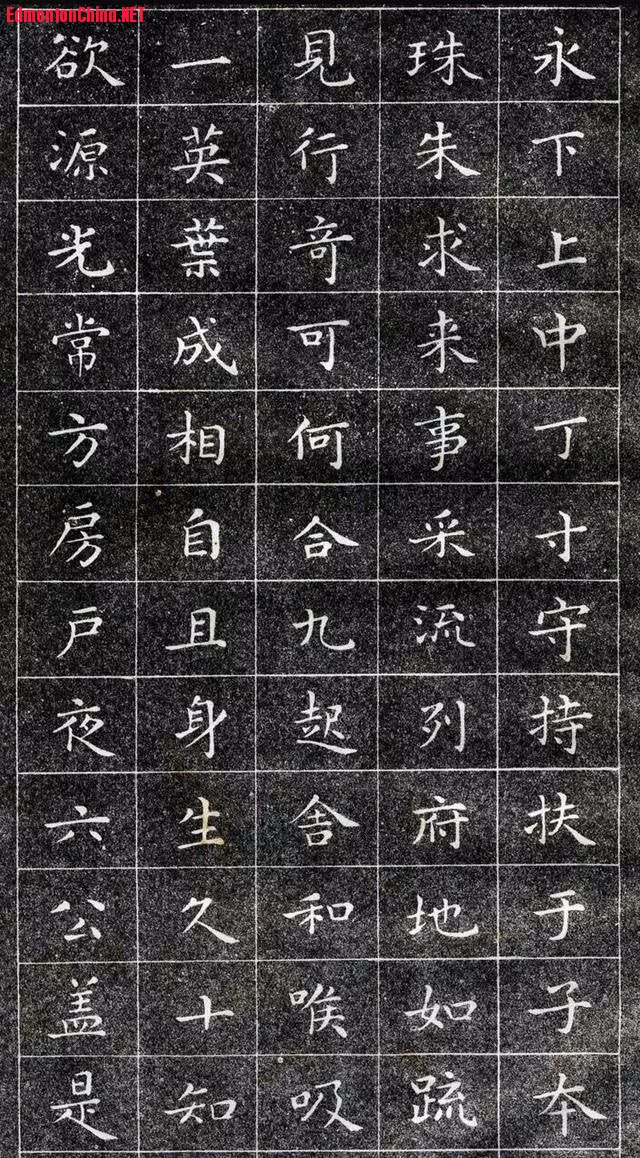 EdmontonChina.NET
永下上中丁寸守持扶于子本
珠朱求来事采流列府地如䟽
見行奇可何合九起舎和唉吸
一英葉成相自且身生久十知
欲源光常方房戸夜六公盖是